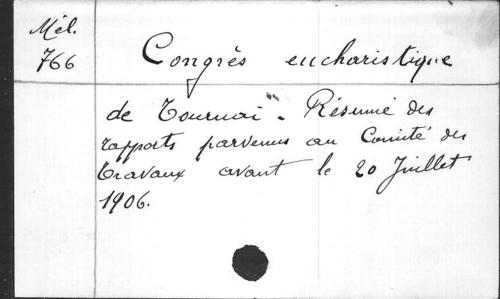 Mél.
766
Congrès eucharistique
de Tournai - Résumé des
rapports parvenus au Comité des
travaux avant le 20 Juillet
1906.